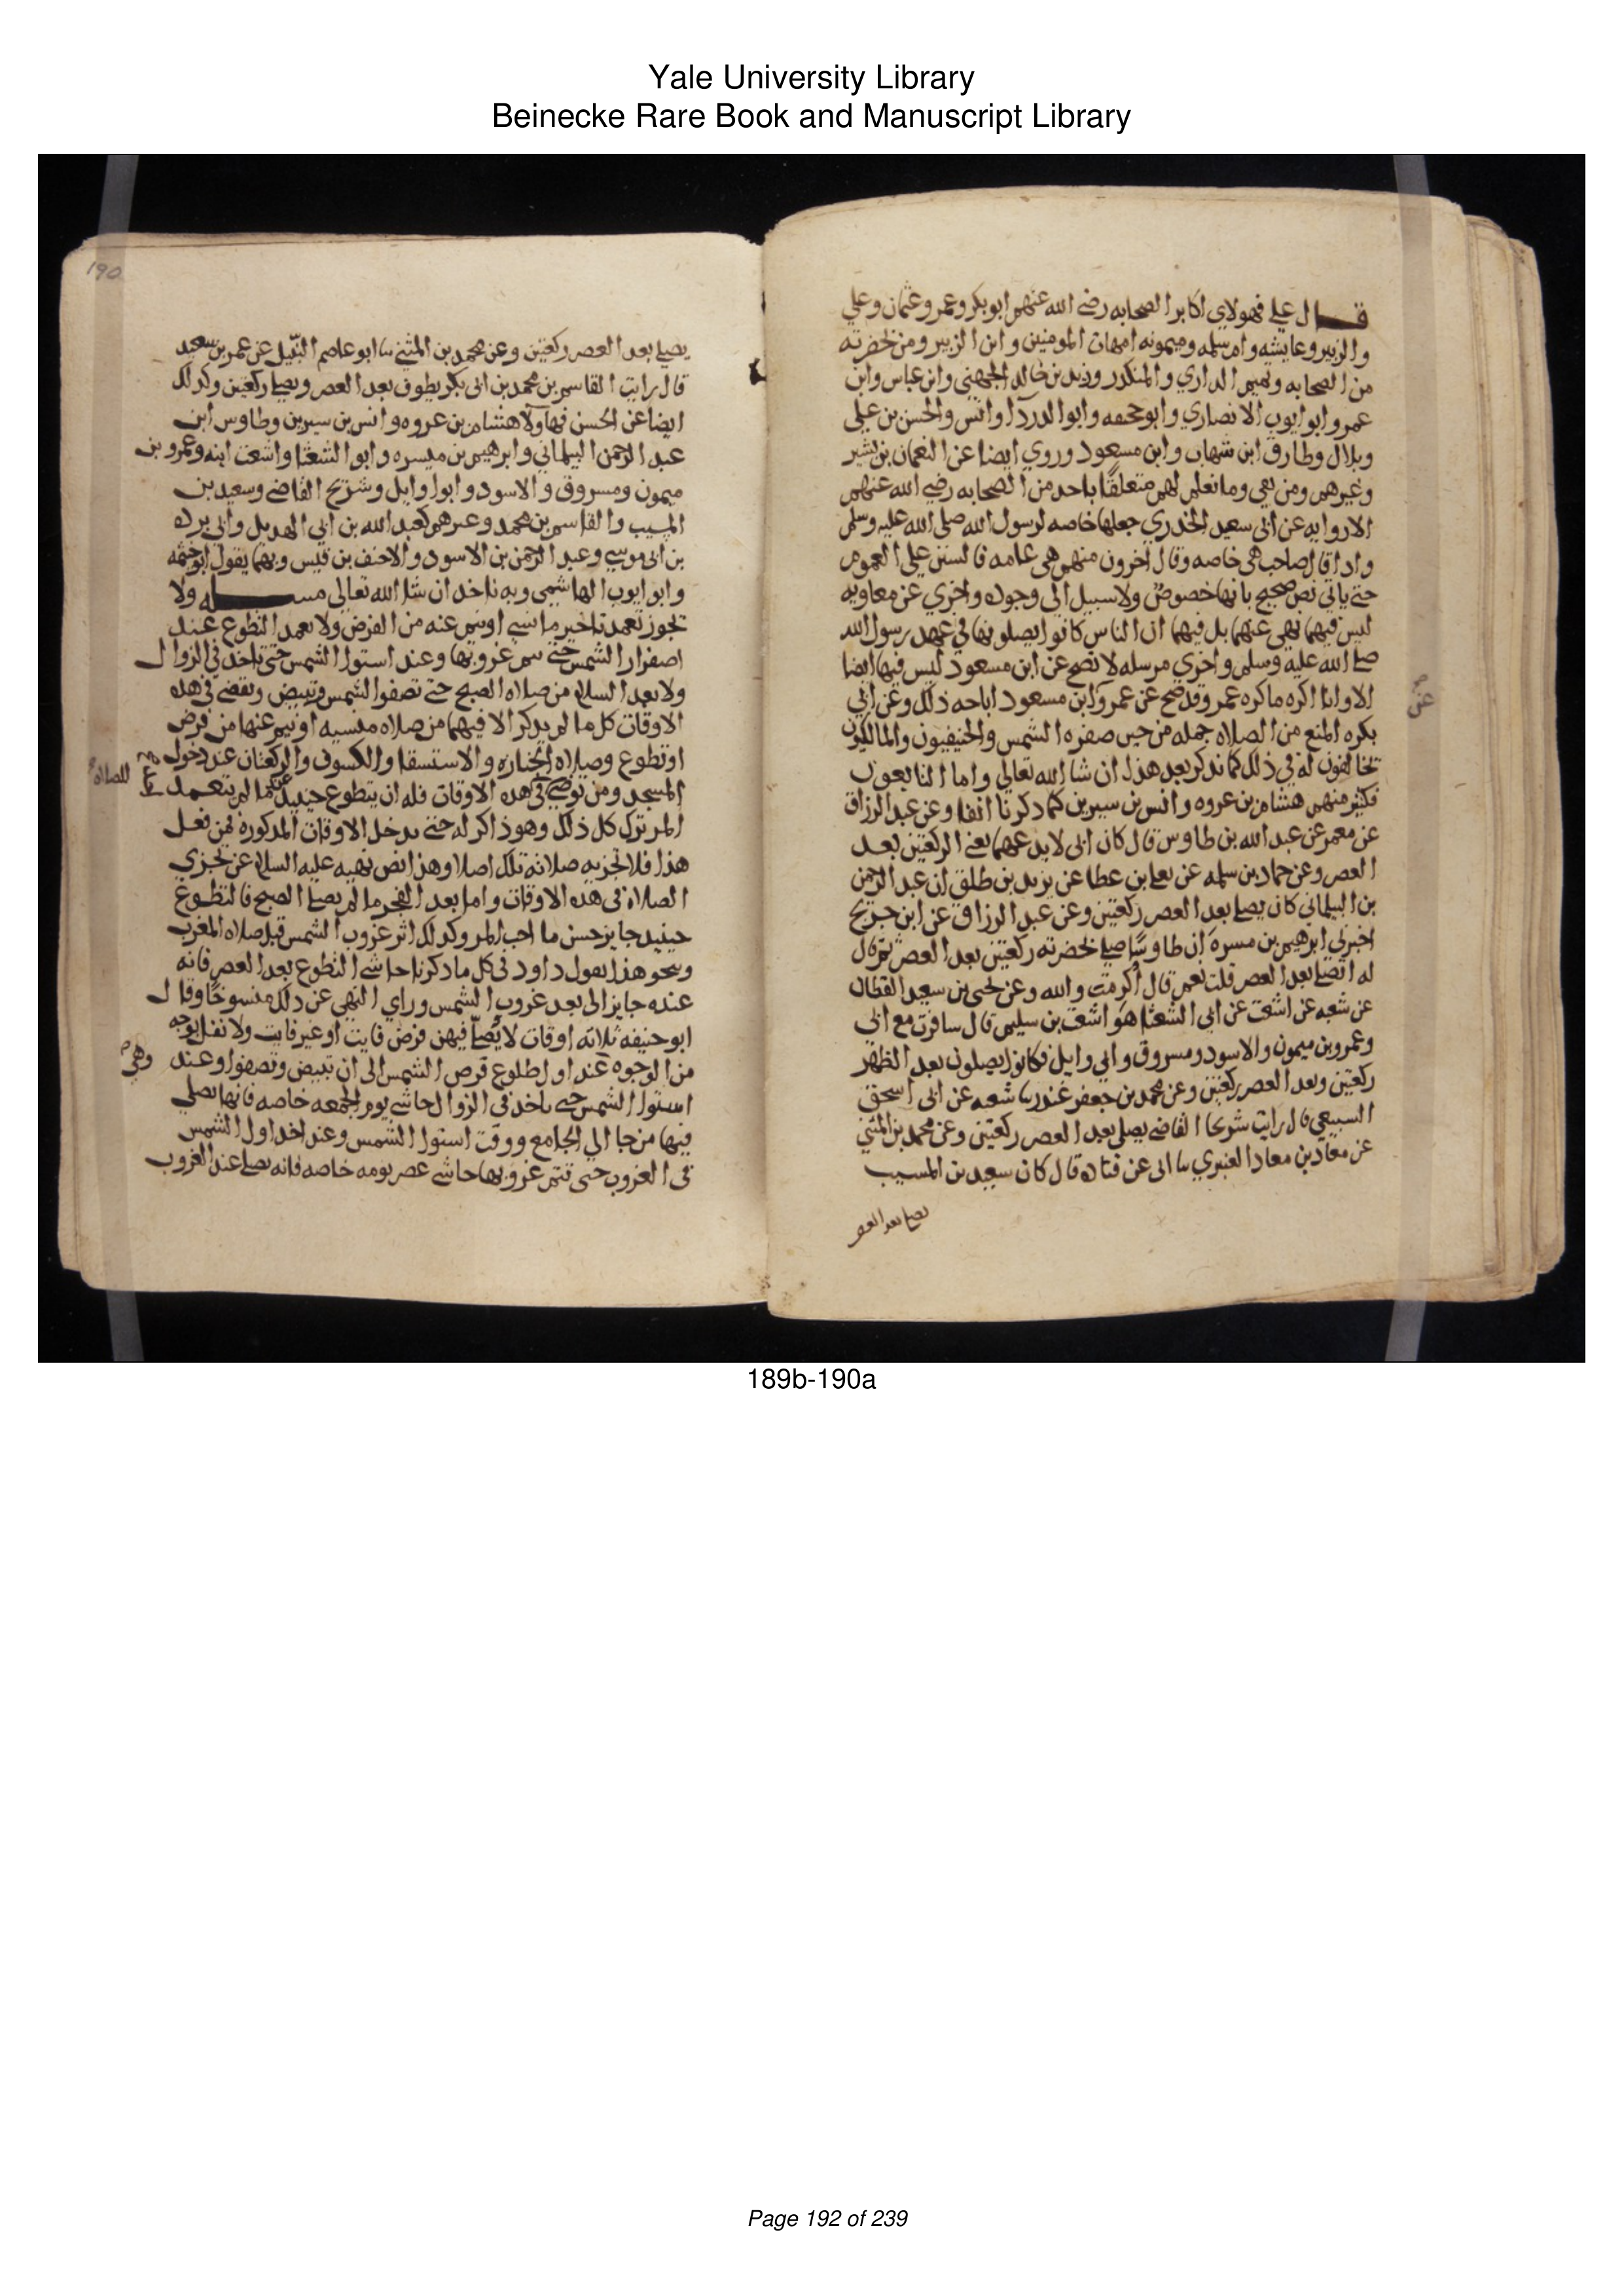 Yale University Library
Beinecke Rare Book and Manuscript Library
قال علي فهولاي اكابر الصحابه رضي الله عنهم ابو بكر وعمر وعثمان وعلي
والزبير وعايشه وام سلمه وميمونه امهات المومنين وابن الزبير ومن بحضرته
من الصحابه وتميم الداري والمنكدر وزيد بن خالد الجهني وابن عباس وابن
عمر وابو ايوب الانصاري وابو جحيفه وابو الدردا وانس والحسن بن علي
وبلال وطارق ابن شهاب وابن مسعود وروي ايضا عن النعمان بن بشير
وغيرهم ومن بقي وما نعلم لهم متعلقا باحد من الصحابه رضي الله عنهم
الا روايه عن ابي سعيد الخدري جعلها خاصه لرسول الله صلى الله عليه وسلم
واذا قال صاحب هي خاصه وقال اخرون منهم هي عامه فالسنن على العموم
حتى ياتي نص صحيح بانها خصوص ولا سبيل الى وجوده واخري عن معاويه
ليس فيها نهي عنهما بل فيها ان الناس كانوا يصلونها في عهد رسول الله
صلى الله عليه وسلم واخري مرسله لا تصح عن ابن مسعود ليس فيها ايضا
الا وانا اكره ما كره عمر وقد صح عن عمر وابن مسعود اباحه ذلك وعن ابي
عن صح
بكره المنع من الصلاه جمله من حين صفره الشمس والحنيفيون والمالكيون
مخالفون له في ذلك كما نذكر بعد هذا ان شا الله تعالى واما التابعون
فكثير منهم هشام بن عروه وانس بن سيرين كما ذكرنا انفا وعن عبد الرزاق
عن معمر عن عبد الله بن طاوس قال كان ابي لا يدعهما يعني الركعتين بعد
العصر وعن حماد بن سلمه عن يعلي بن عطا عن يزيد بن طلق ان عبد الرحمن
بن البيلماني كان يصلي بعد العصر ركعتين وعن عبد الرزاق عن ابن جريج
اخبرني ابرهيم بن ميسره ان طاوسا صلي بحضرته ركعتين بعد العصر ثم قال
له اتصلي بعد العصر قلت نعم قال اكرمت والله وعن يحيى بن سعيد القطان
عن شعبه عن اشعث عن ابي الشعثا هو اشعث بن سليم قال سافرت مع ابي
وعمرو بن ميمون والاسود ومسروق وابي وايل فكانوا يصلون بعد الظهر
ركعتين وبعد العصر ركعتين وعن محمد بن جعفر غندر نا شعبه عن ابي اسحق
السبيعي قال رايت شريحا القاضي يصلي بعد العصر ركعتين وعن محمد بن المثني
عن معاذ بن معاذ العنبري نا ابي عن قتاده قال كان سعيد بن المسيب
يصلي بعد العصر
190
يصلي بعد العصر ركعتين وعن محمد بن المثني نا ابو عاصم النبيل عن عمر بن سعيد
قال رايت القاسم بن محمد بن ابي بكر يطوف بعد العصر ويصلي ركعتين وكذلك
ايضا عن الحسن فهاولا هشام بن عروه وانس بن سيرين وطاوس ابن
عبد الرحمن البيلماني وابرهيم بن ميسره وابو الشعثا واشعث ابنه وعمرو بن
ميمون ومسروق والاسود وابو وايل وشريح القاضي وسعيد بن
المسيب والقاسم بن محمد وغيرهم كعبد الله بن ابي الهديل وابي برده
بن ابي موسى وعبد الرحمن بن الاسود والاحنف بن قيس وبهما يقول ابو خيثمه
وابو ايوب الهاشمي وبه ناخذ ان شا الله تعالى مسله ولا
يجوز تعمد تاخير ما نسي او نيم عنه من الفرض ولا تعمد التطوع عند
اصفرار الشمس حتى يتم غروبها وعند استوا الشمس حتى تاخذ في الزوال
ولا بعد السلام من صلاه الصبح حتى تصفوا الشمس وتبيض ويقضي في هذه
الاوقات كل ما لم يذكر الا فيهما من صلاه منسيه او نيم عنها من فرض
او تطوع وصلاه الجنازه والاستسقا والكسوف والركعتان عند دخول
المسجد ومن توضي في هذه الاوقات فله ان يتطوع حينيذ ما لم يتعمد
للصلاه
المر ترك كل ذلك وهو ذاكر له حتى تدخل الاوقات المذكوره فمن فعل
هذا فلا تجزيه صلاته تلك اصلا وهذا نص نهيه عليه السلام عن تحري
الصلاه في هذه الاوقات واما بعد الفجر ما لم يصلي الصبح فالتطوع
حينيذ جايز حسن ما احب المر وكذلك اثر غروب الشمس قبل صلاه المغرب
وبنحو هذا يقول داود في كل ما ذكرنا حاشي التطوع بعد العصر فانه
عنده جايز الى بعد غروب الشمس وراي النهي عن ذلك منسوخا وقال
ابو حنيفه ثلاثه اوقات لا يصلي فيهن فرض فايت او غير فايت ولا نفل بوجه
من الوجوه عند اول طلوع قرص الشمس الى ان تبيض وتصفوا وعند
وهي صح
استوا الشمس حتى تاخذ في الزوال حاشي يوم الجمعه خاصه فانها يصلي
فيها من جا الي الجامع ووقت استوا الشمس وعند اخذ اول الشمس
في الغروب حتى تتم غروبها حاشي عصر يومه خاصه فانه يصلي عند الغروب
189b-190a
Page 192 of 239